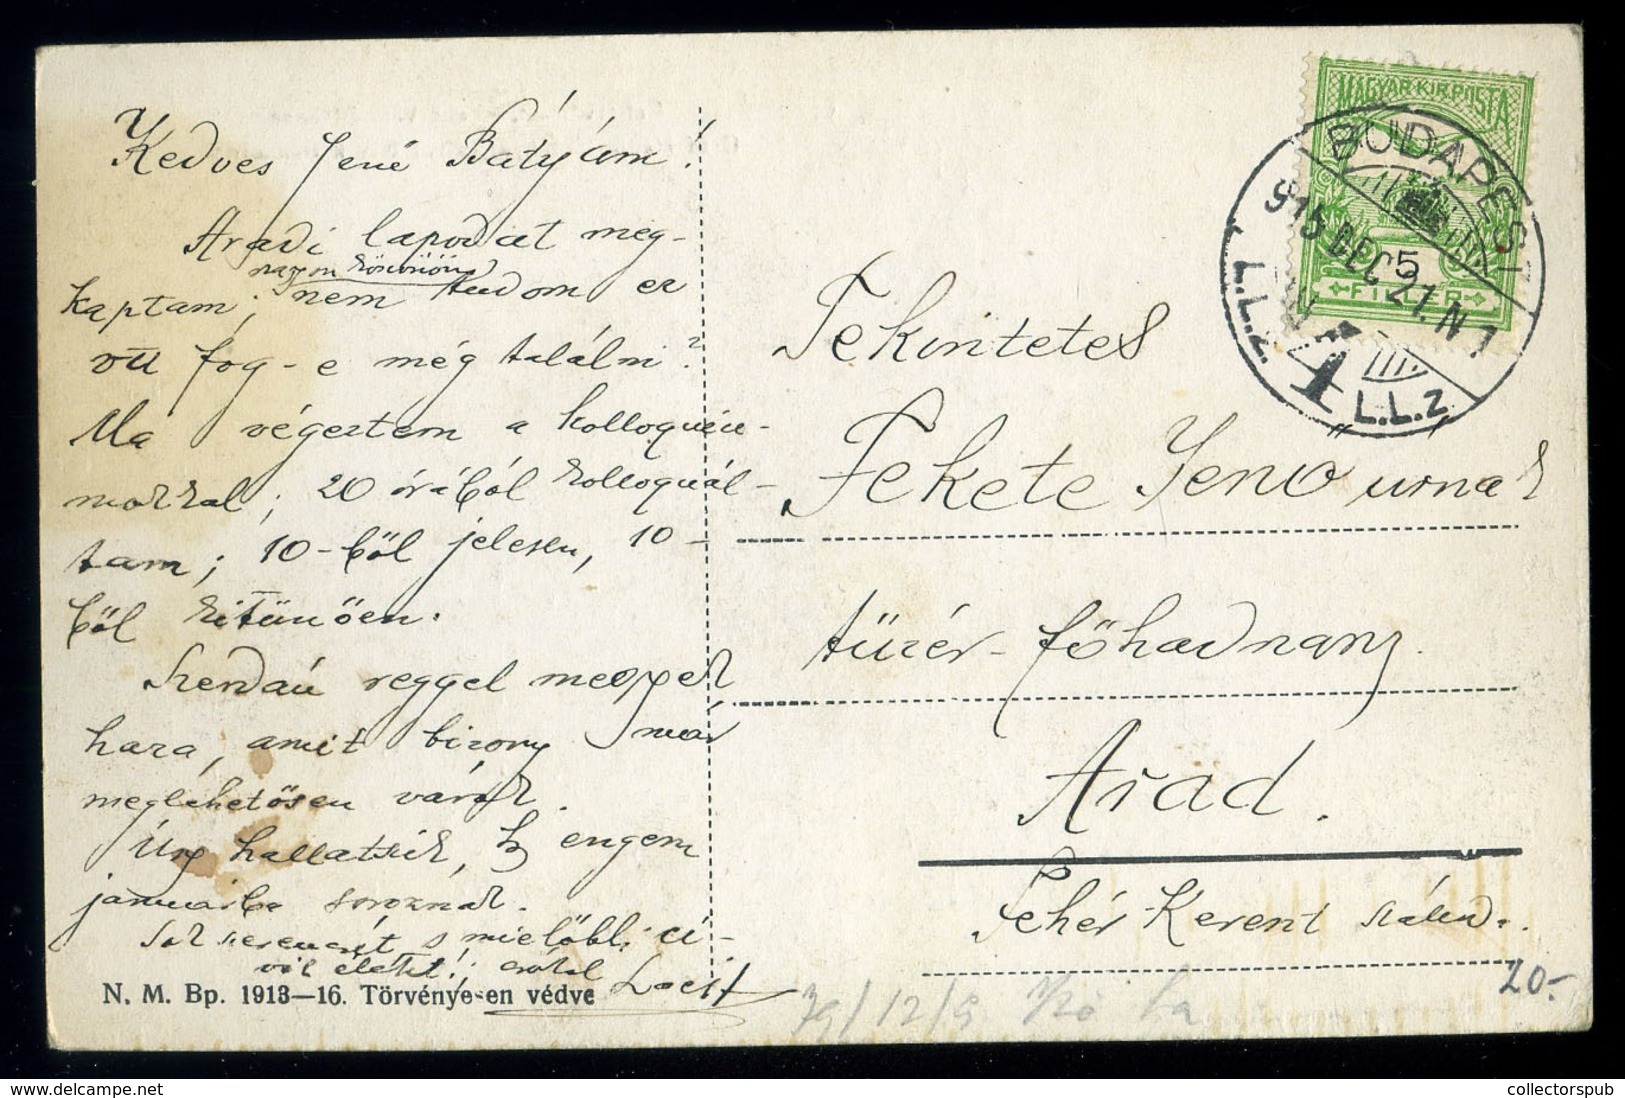 Kedves Jenő Bátyám!
Aradi lapodat meg-
nagyon köszönöm
kaptam; nem tudom ez
ott fog-e még találni?
Ma végeztem a kolloquiu-
mokkal; 20 órából kolloquál-
tam; 10-ből jelesen, 10-
ből kitünően.
Szerdán reggel megyek
haza, amit bizony már
meglehetősen várok.
Úgy hallatszik, h engem
januárba soroznak.
Sok szerencsét s mielőbbi ci-
vil életet!
N. M. Bp. 1913—16. Törvényesen védve
MAGYAR KIR. POSTA
5
FILLÉR
BUDAPEST
915 DEC 21. N 1
L.L.Z.
4
L.L.Z
Tekintetes
Fekete Jenő urnak
tüzér-főhadnagy
Arad.
Fehér Kereszt szálló.
20.-
collectorspub